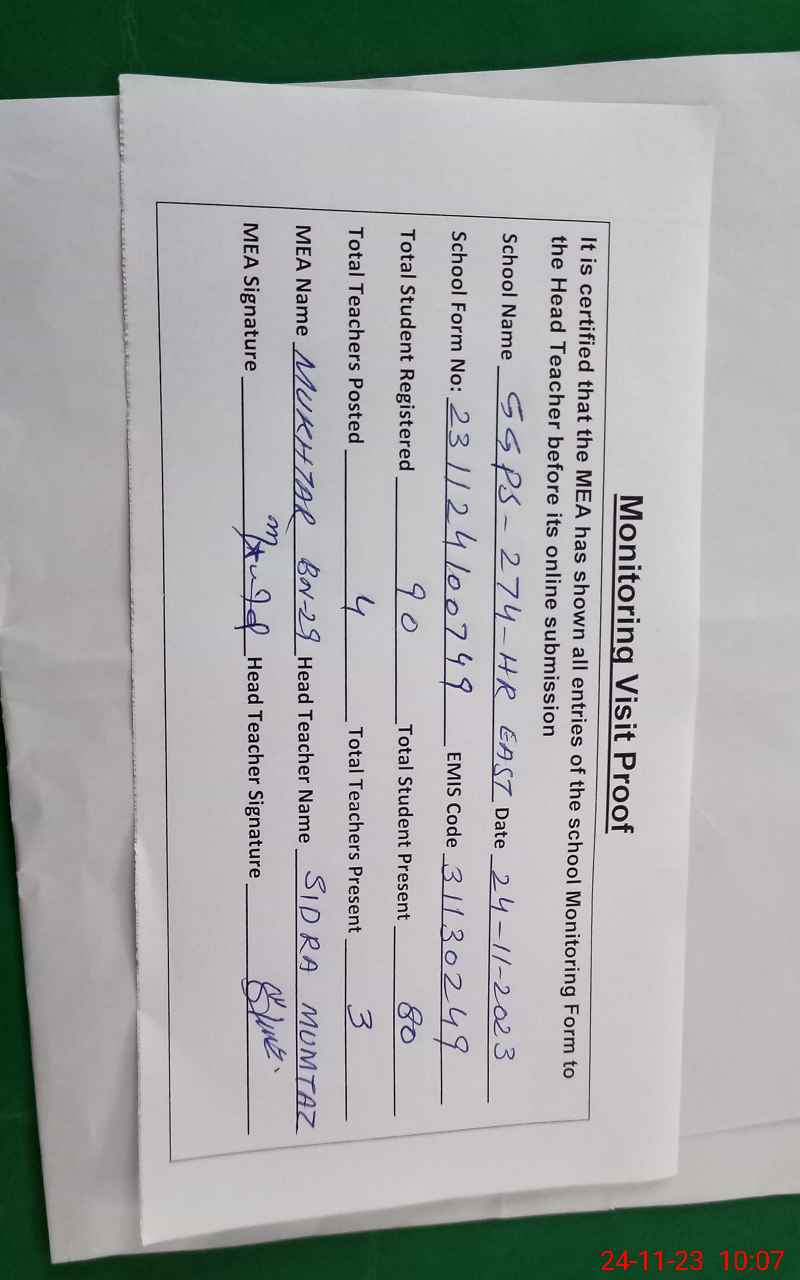 Monitoring Visit Proof
It is certified that the MEA has shown all entries of the school Monitoring Form to
the Head Teacher before its online submission
School Name GGPS-274-HR EAST Date 24-11-2023
School Form No: 231124100749 EMIS Code 31130249
Total Student Registered 90 Total Student Present 80
Total Teachers Posted 4 Total Teachers Present 3
MEA Name MUKHTAR BN-29 Head Teacher Name SIDRA MUMTAZ
MEA Signature Head Teacher Signature
24-11-23 10:07